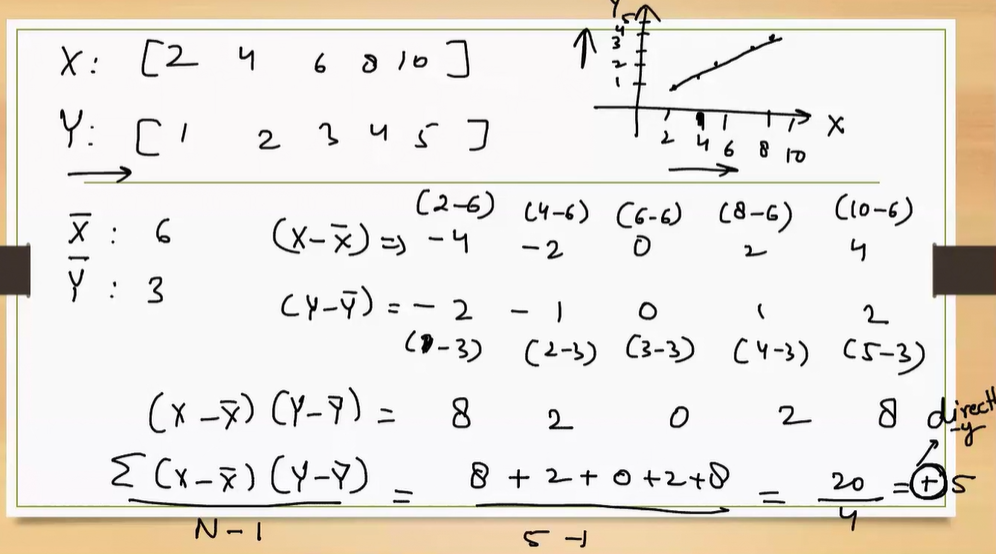 X: [2 4 6 8 10]
Y: [1 2 3 4 5]
Y
5
4
3
2
1
2 4 6 8 10
X
X̄ : 6
Ȳ : 3
(2-6) (4-6) (6-6) (8-6) (10-6)
(X-X̄) => -4 -2 0 2 4
(Y-Ȳ) = -2 -1 0 1 2
(1-3) (2-3) (3-3) (4-3) (5-3)
(X-X̄) (Y-Ȳ) = 8 2 0 2 8
direct
-ly
Σ (X-X̄) (Y-Ȳ) = 8 + 2 + 0 + 2 + 8 = 20 = + 5
N-1 5-1 4